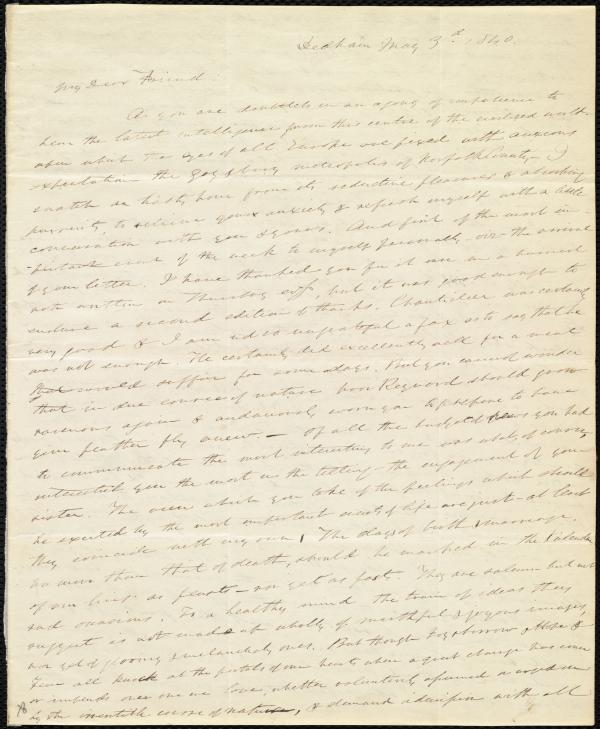 Dedham May 3d 1840.
My Dear Friend:
As you are doubtless in an agony of impatience to
hear the latest intelligence from this centre of the civilized world,
upon what the eyes of all Europe are fixed with anxious
expectation the gay & busy metropolis of Norfolk County, I
snatch a hasty hour from its seductive pleasures & absorbing
pursuits, to relieve your anxiety & refresh myself with a little
conversation with you & yours. And first of the most im-
portant event of the week to myself personally viz the arrival
of your letter. I have thanked you for it in a hurried
note written on Thursday but it was good enough to
endure a second edition of thanks. Chanticleer was certainly
very good & I am not so ungrateful a fox as to say that he
was not enough. He certainly did excellently well for a meat
would suffice for some days. But you cannot wonder
that in due course of nature how Reynard should grow
ravenous again & audaciously urge you to prepare to have
your feather fly anew. — Of all the budget of news you had
to communicate the most interesting to me was what, of course,
interested you the most in the telling — the engagement of your
sister. The view which you take of the feelings which should
be excited by the most important events of life are just — at least
they coincide with my own. The days of birth & marriage,
no more than that of death, should be marked in the Calendar
of our lives as feasts — nor yet as fasts. They are solemn but not
sad occasions. To a healthy mind the train of ideas they
suggest is not made up wholly of mirthful & joyous images,
nor yet of gloomy & melancholy ones. But though Joy & Sorrow & Hope &
Fear all knock at the portals of our hearts when a great change has come
or impends over one we love, whether voluntarily assumed or urged on
by the inevitable course of nature, & demand admission with all